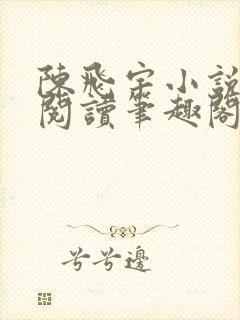 陳飛宇小說
閱讀筆趣閣
兮兮邊